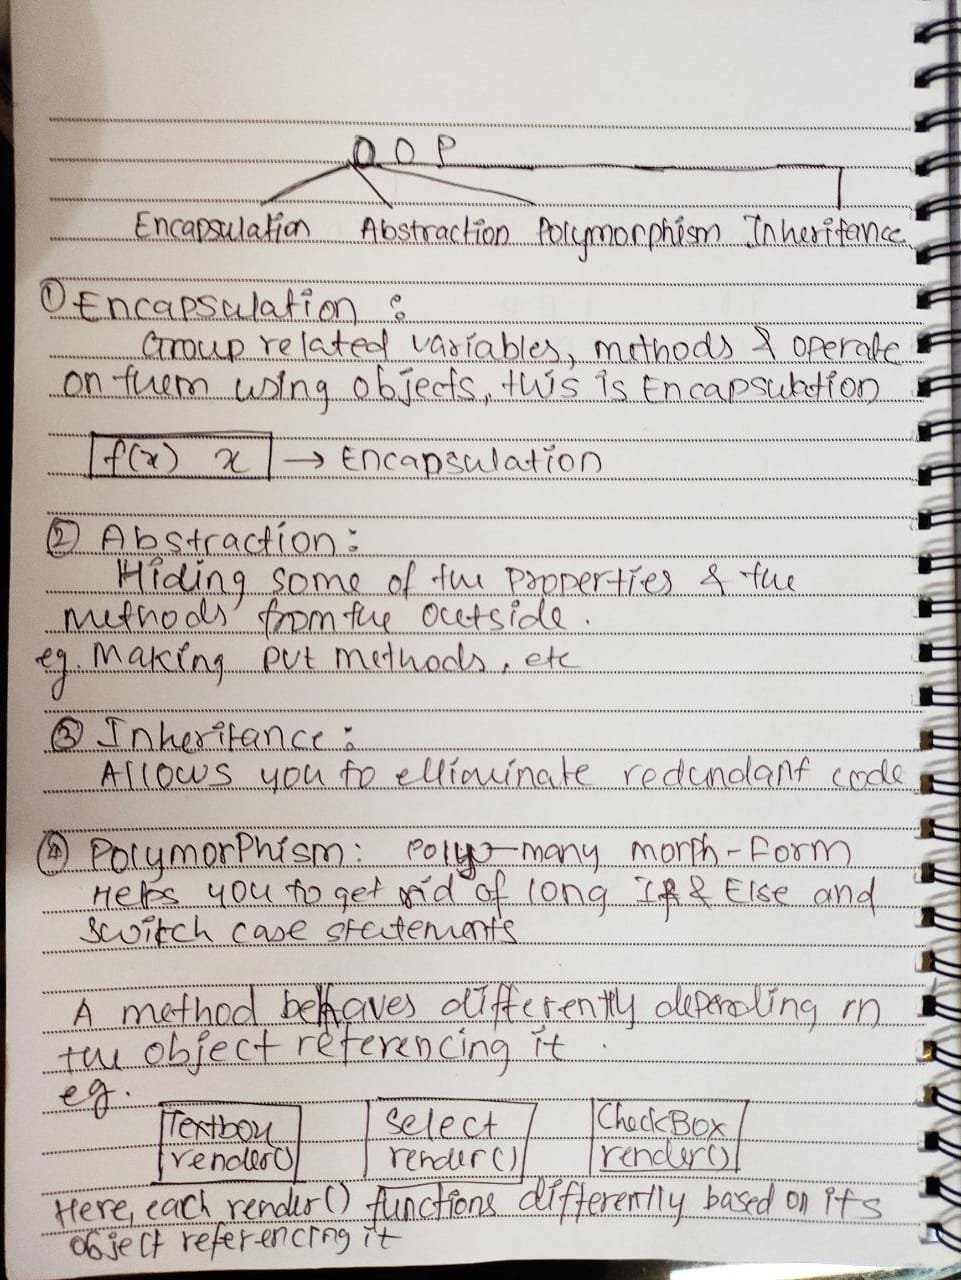 OOP
Encapsulation Abstraction Polymorphism Inheritance
① Encapsulation :
Group related variables, methods & operate
on them using objects, this is Encapsulation
f(x) x → Encapsulation
② Abstraction :
Hiding some of the properties & the
methods from the outside.
eg. Making pvt methods, etc
③ Inheritance :
Allows you to elliminate redundant code
④ Polymorphism : Poly-many morph-Form
Helps you to get rid of long If & Else and
switch case statements
A method behaves differently depending on
the object referencing it.
eg.
Textbox Select CheckBox
render() render() render()
Here, each render() functions differently based on its
object referencing it